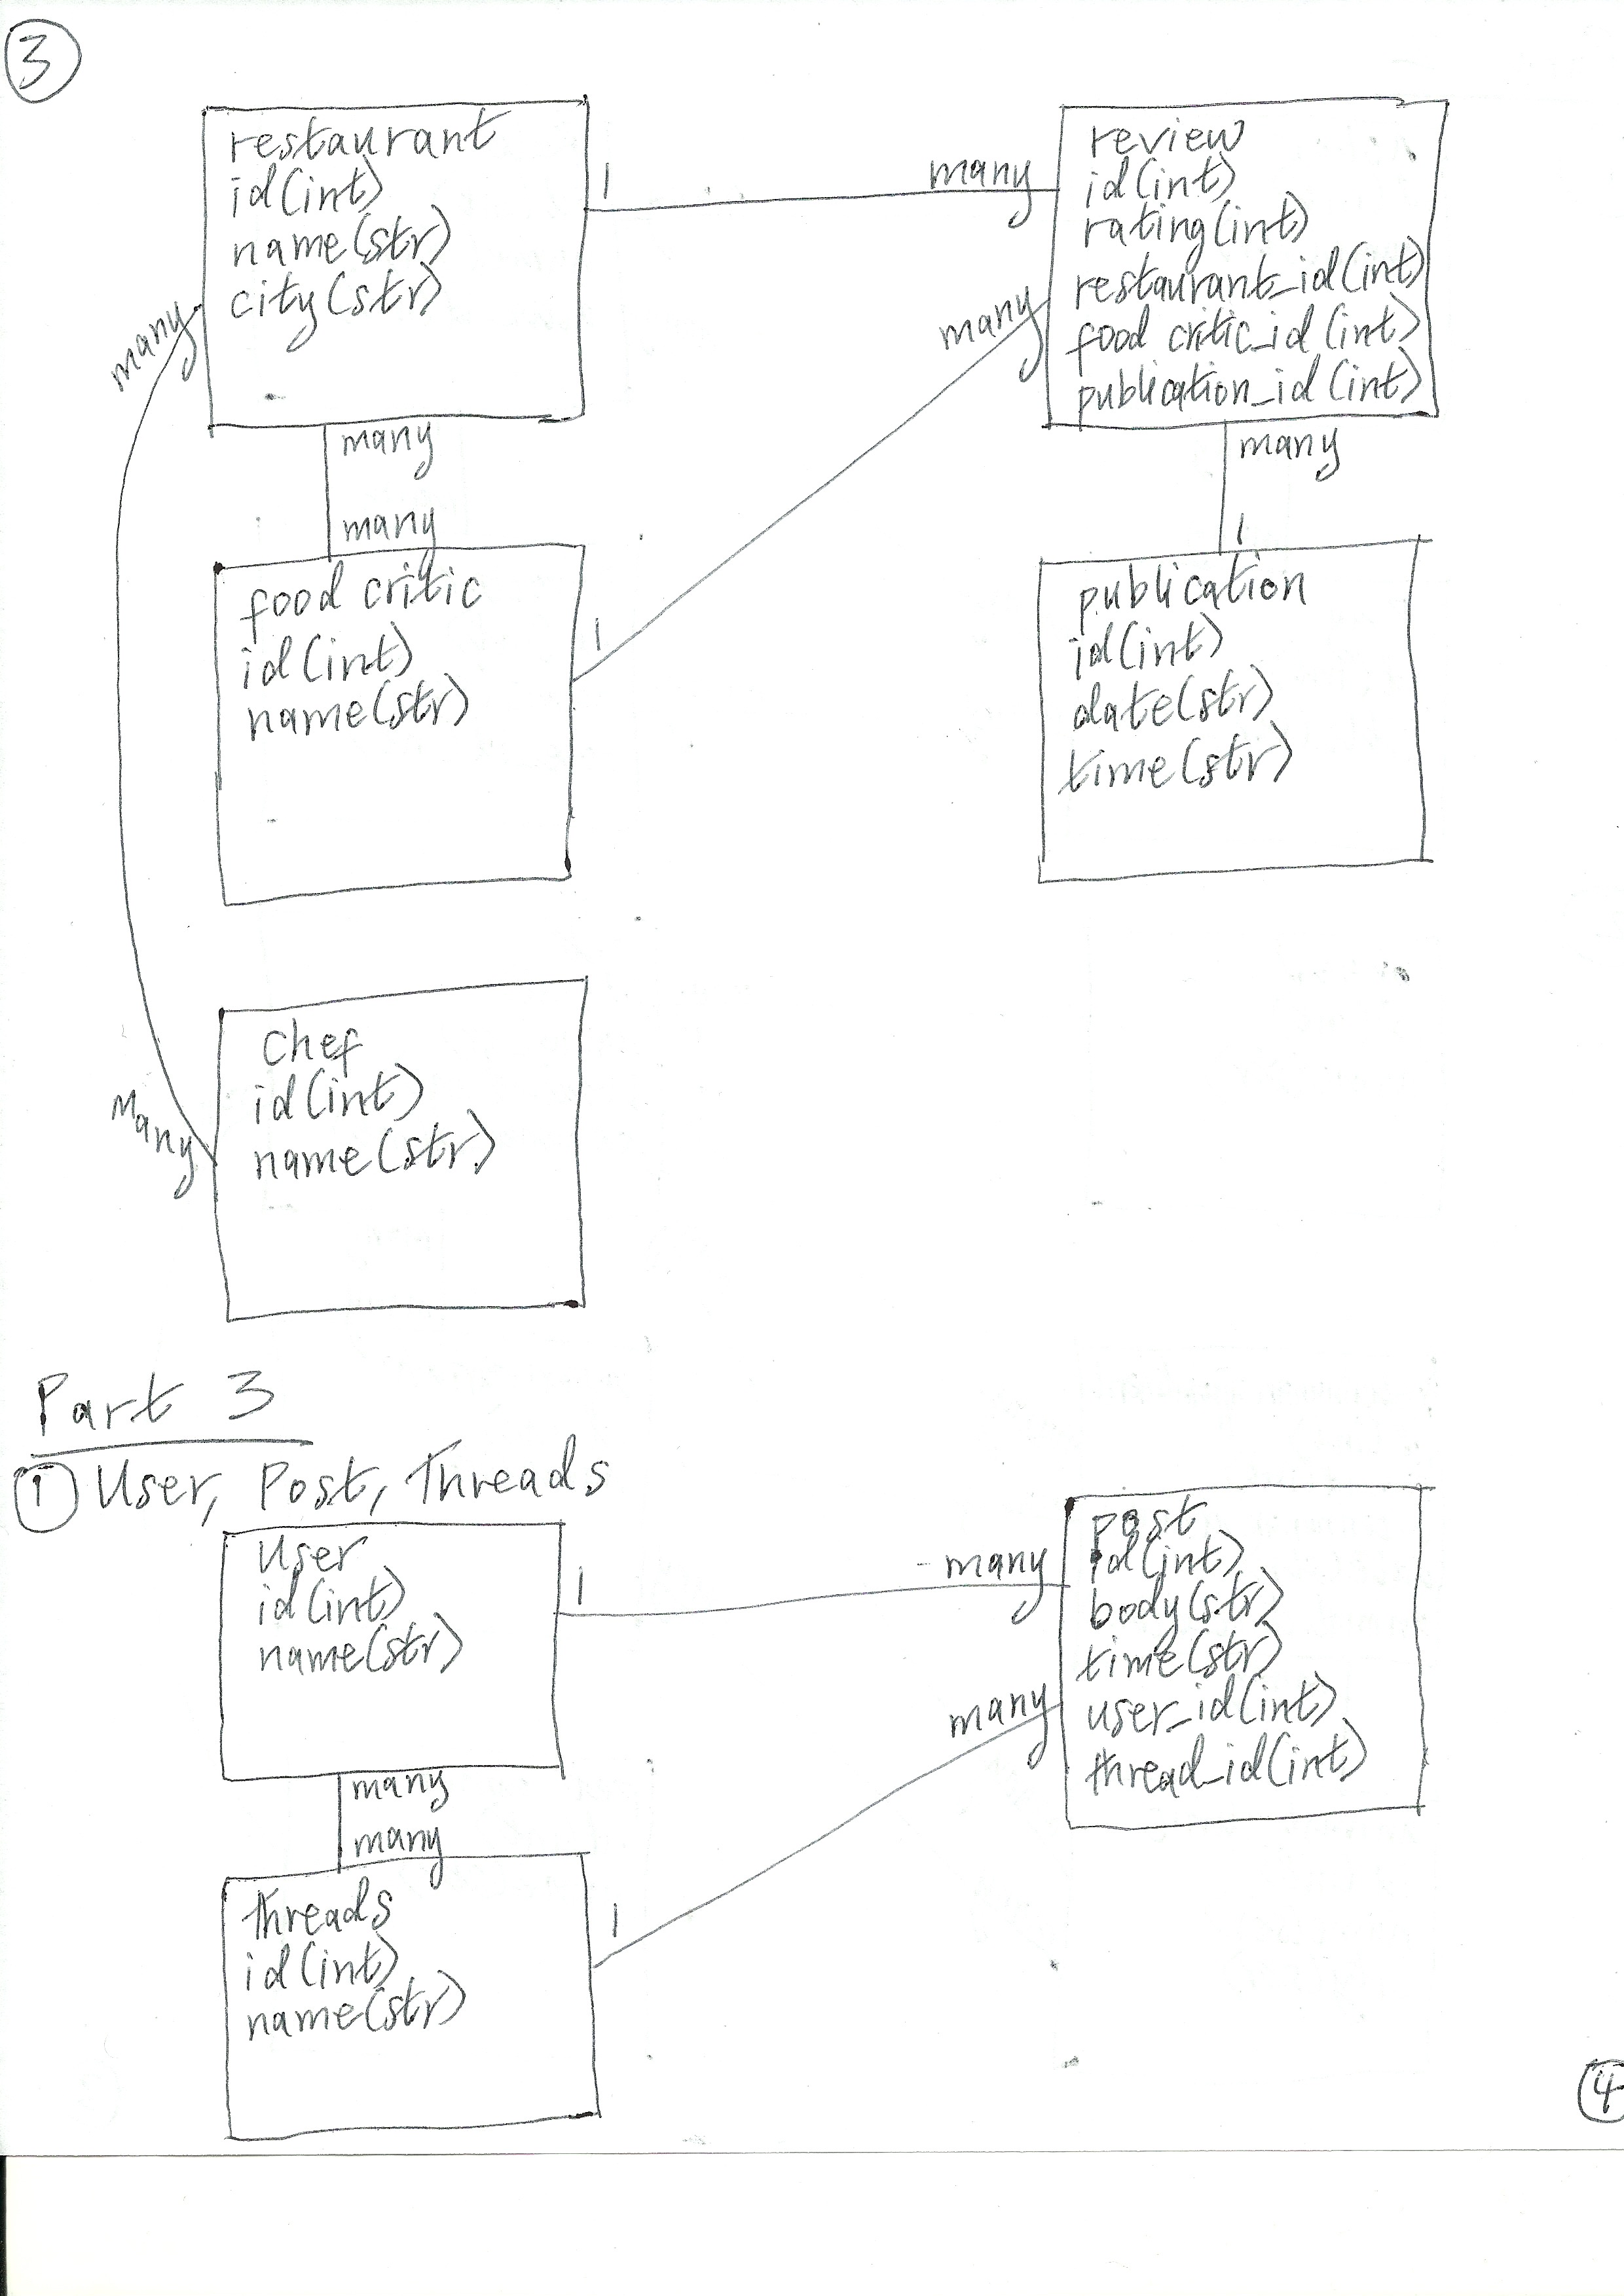 3
restaurant
id(int)
name(str)
city(str)
1
many
review
id(int)
rating(int)
restaurant_id(int)
food critic_id(int)
publication_id(int)
many
many
many
many
many
food critic
id(int)
name(str)
1
1
publication
id(int)
date(str)
time(str)
chef
id(int)
name(str)
many
Part 3
1 User, Post, Threads
user
id(int)
name(str)
1
many
post
id(int)
body(str)
time(str)
user_id(int)
thread_id(int)
many
many
many
threads
id(int)
name(str)
1
4